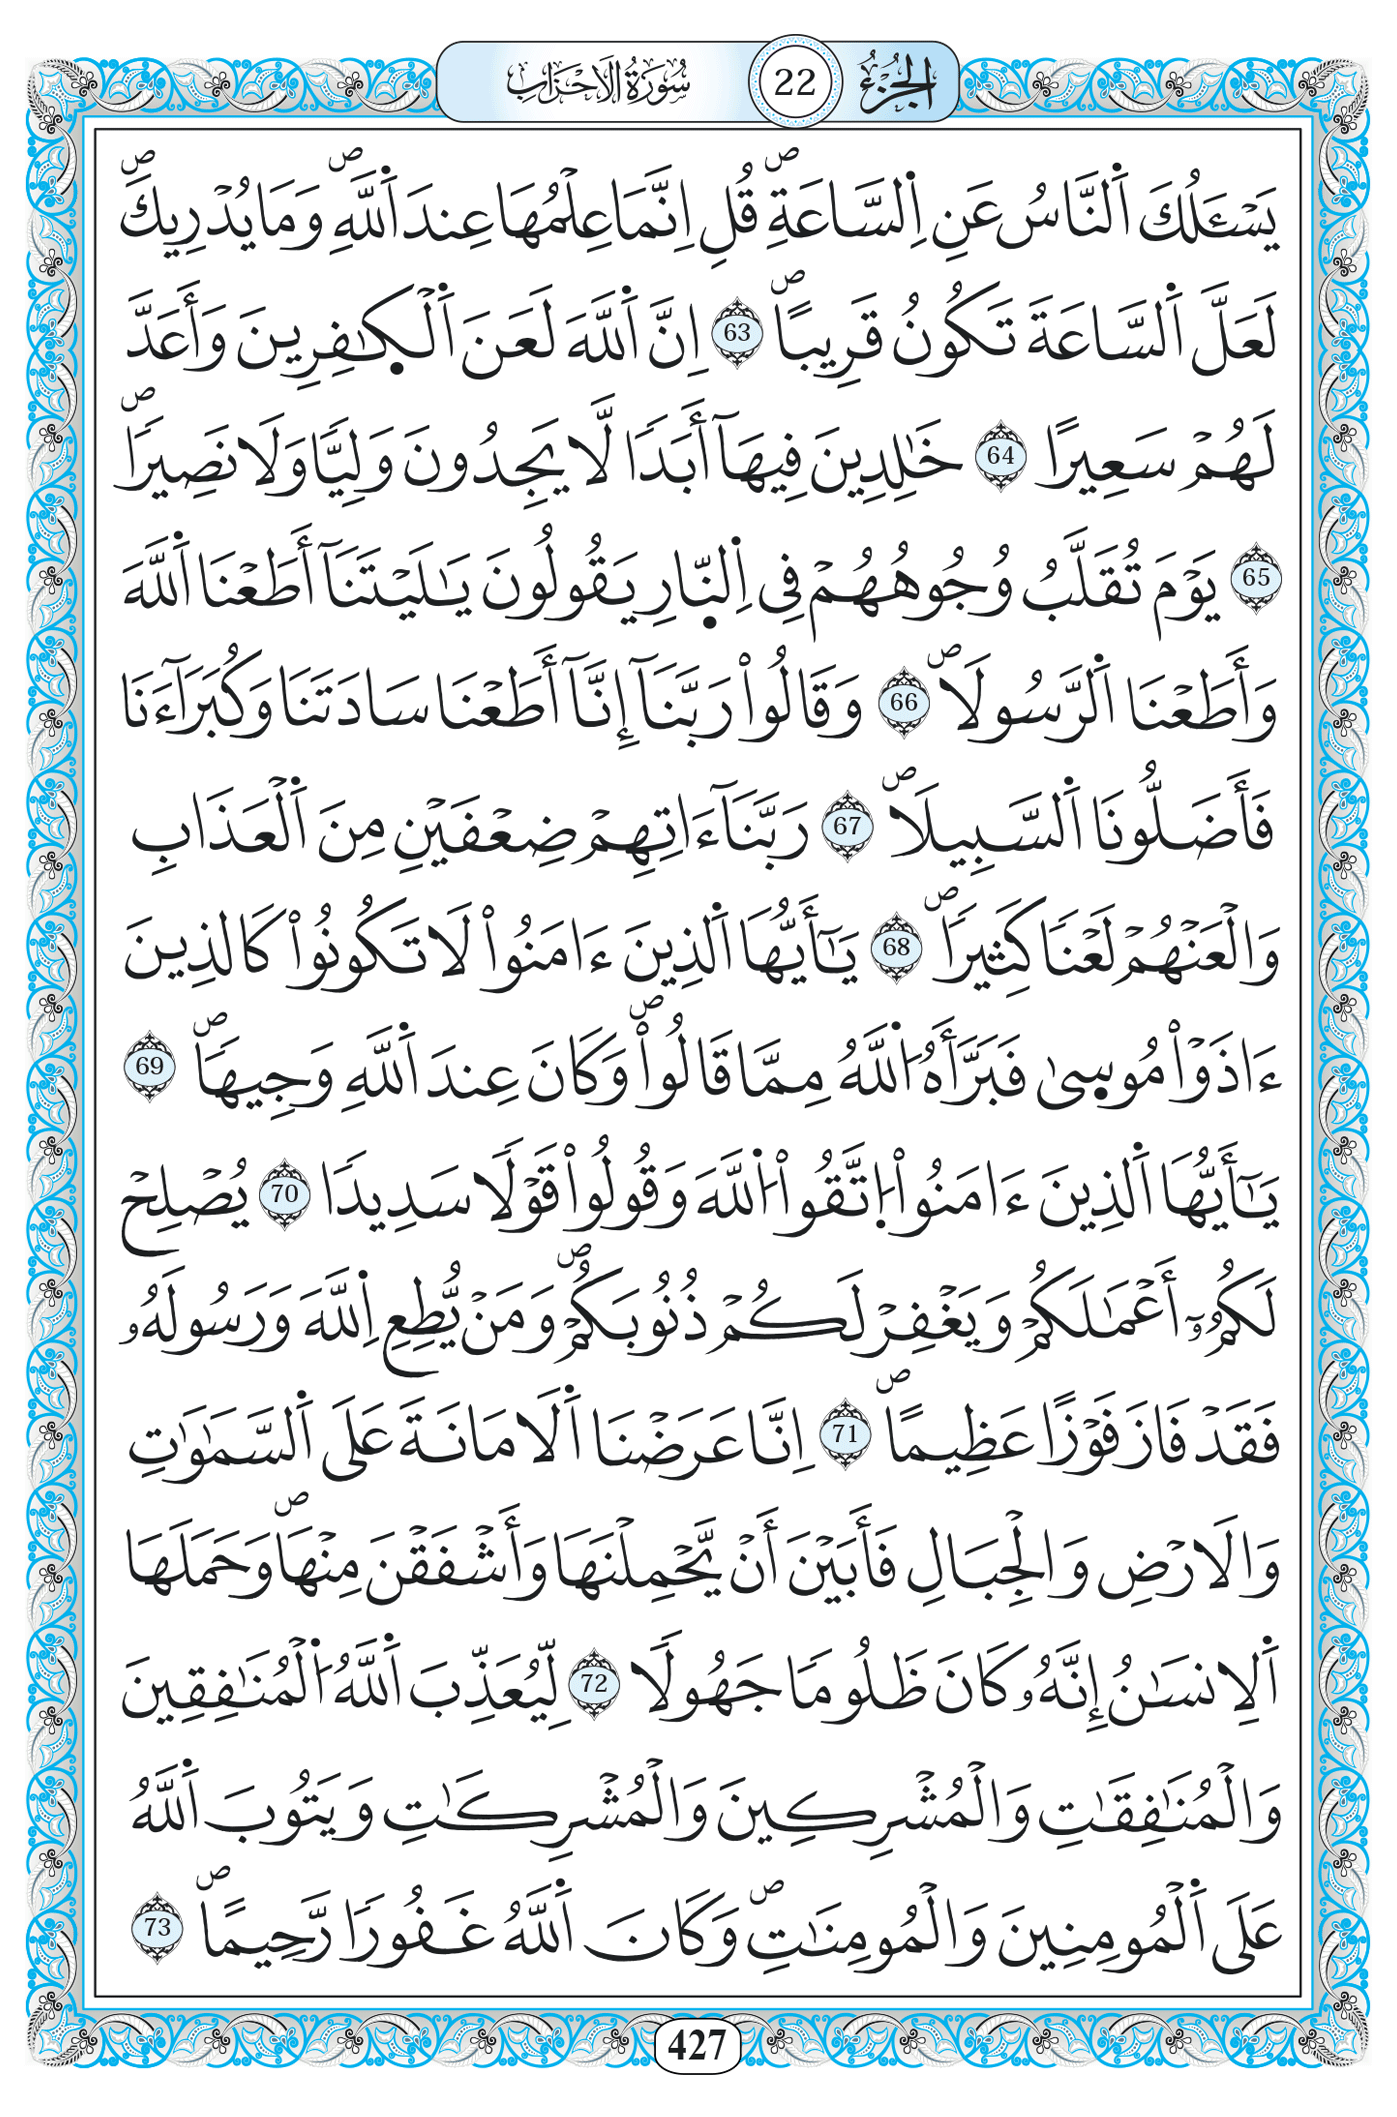 الجزء 22 سورة الاحزاب
يَسْـَٔلُكَ اَ۬لنَّاسُ عَنِ اِ۬لسَّاعَةِۖ قُلِ اِنَّمَا عِلْمُهَا عِندَ اَ۬للَّهِۖ وَمَا يُدْرِيكَۖ
لَعَلَّ اَ۬لسَّاعَةَ تَكُونُ قَرِيباًۖ 63 اِنَّ اَ۬للَّهَ لَعَنَ اَ۬لْكٰ۪فِرِينَ وَأَعَدَّ
لَهُمْ سَعِيراً 64 خَٰلِدِينَ فِيهَآ أَبَداٗ لَّا يَجِدُونَ وَلِيّاٗ وَلَا نَصِيراٗۖ
65 يَوْمَ تُقَلَّبُ وُجُوهُهُمْ فِي اِ۬لنّ۪ارِ يَقُولُونَ يَٰلَيْتَنَآ أَطَعْنَا اَ۬للَّهَ
وَأَطَعْنَا اَ۬لرَّسُولَاۖ 66 وَقَالُواْ رَبَّنَآ إِنَّآ أَطَعْنَا سَادَتَنَا وَكُبَرَآءَنَا
فَأَضَلُّونَا اَ۬لسَّبِيلَاۖ 67 رَبَّنَآ ءَاتِهِمْ ضِعْفَيْنِ مِنَ اَ۬لْعَذَابِ
وَالْعَنْهُمْ لَعْناٗ كَثِيراٗۖ 68 يَٰٓأَيُّهَا اَ۬لذِينَ ءَامَنُواْ لَا تَكُونُواْ كَالذِينَ
ءَاذَوْاْ مُوس۪ىٰ فَبَرَّأَهُ اُ۬للَّهُ مِمَّا قَالُواْۖ وَكَانَ عِندَ اَ۬للَّهِ وَجِيهاٗۖ 69
يَٰٓأَيُّهَا اَ۬لذِينَ ءَامَنُواْ اُ۪تَّقُواْ اُ۬للَّهَ وَقُولُواْ قَوْلاٗ سَدِيداٗ 70 يُصْلِحْ
لَكُمُۥٓ أَعْمَٰلَكُمْ وَيَغْفِرْ لَكُمْ ذُنُوبَكُمْۖ وَمَنْ يُّطِعِ اِ۬للَّهَ وَرَسُولَهُۥ
فَقَدْ فَازَ فَوْزاً عَظِيماًۖ 71 اِنَّا عَرَضْنَا اَ۬لَامَانَةَ عَلَى اَ۬لسَّمَٰوَٰتِ
وَالَارْضِ وَالْجِبَالِ فَأَبَيْنَ أَنْ يَّحْمِلْنَهَا وَأَشْفَقْنَ مِنْهَاۖ وَحَمَلَهَا
اَ۬لِانسَٰنُ إِنَّهُۥ كَانَ ظَلُوماٗ جَهُولاٗ 72 لِّيُعَذِّبَ اَ۬للَّهُ اُ۬لْمُنَٰفِقِينَ
وَالْمُنَٰفِقَٰتِ وَالْمُشْرِكِينَ وَالْمُشْرِكَٰتِ وَيَتُوبَ اَ۬للَّهُ
عَلَى اَ۬لْمُومِنِينَ وَالْمُومِنَٰتِۖ وَكَانَ اَ۬للَّهُ غَفُوراٗ رَّحِيماًۖ 73
427